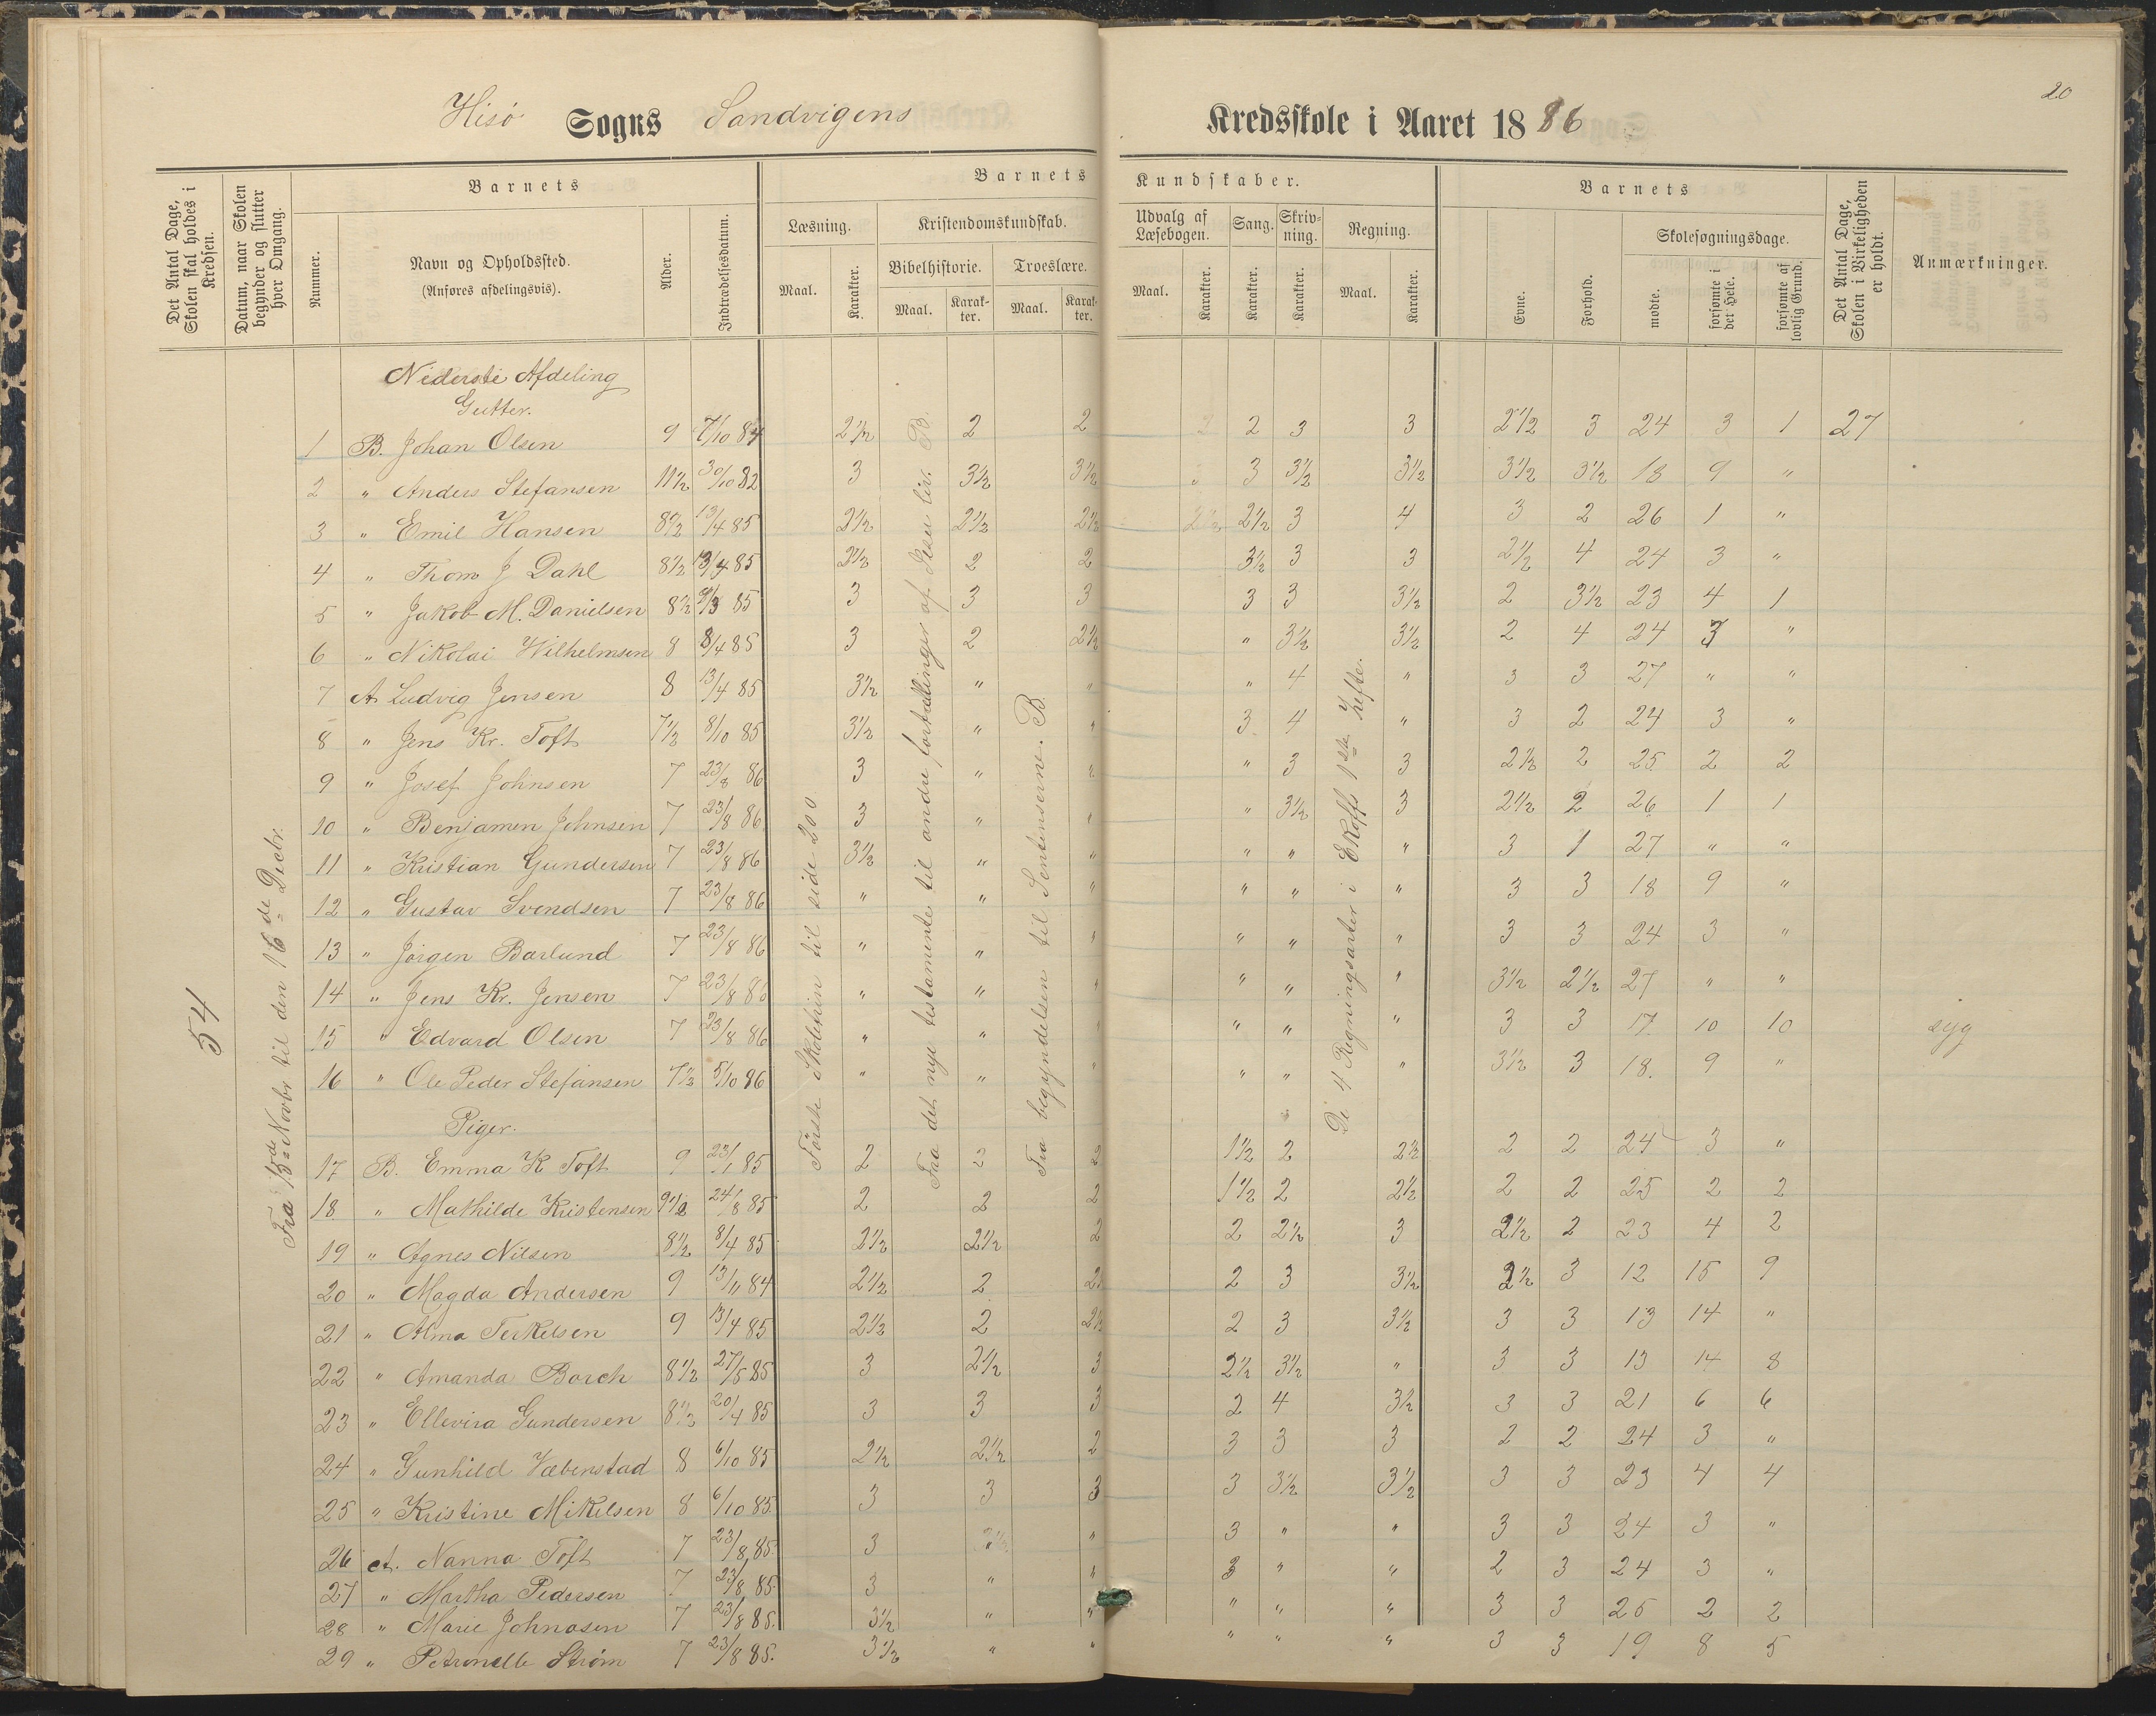 20
Hisö Sogns Sandvigens Kredsskole i Aaret 1886
Det Antal Dage, Skolen skal holdes i Kredsen.
Datum, naar Skolen begynder og slutter hver Omgang.
Barnets
Nummer.
Navn og Opholdssted.
(Anføres afdelingsvis).
Alder.
Indtrædelsesdatum.
Barnets Kundskaber.
Læsning.
Maal.
Karakter.
Kristendomskundskab.
Bibelhistorie.
Maal.
Karakter.
Troeslære.
Maal.
Karakter.
Udvalg af Læsebogen.
Maal.
Karakter.
Sang.
Karakter.
Skrivning.
Karakter.
Regning.
Maal.
Karakter.
Barnets
Evne.
Forhold.
Skolesøgningsdage.
mødte.
forsømte i det Hele.
forsømte af lovlig Grund.
Det Antal Dage, Skolen i Virkeligheden er holdt.
Anmærkninger.
54
Fra 15de Novbr til den 16de Decbr.
Første Skoletrin til side 200.
Fra det nye testamente til andre fortællinger af Jesu liv. B.
Fra begyndelsen til Sentenserne. B.
De 4 Regningsarter i Ekoffs 1ste hefte.
Nederste Afdeling
Gutter.
1 B. Johan Olsen 9 7/10 84 2½ 2 2 2 2 3 3 2½ 3 24 3 1 27
2 " Anders Stefansen 11½ 30/10 82 3 3½ 3½ 3 3 3½ 3½ 3½ 3½ 18 9 "
3 " Emil Hansen 8½ 13/4 85 2½ 2½ 2½ 2½ 2½ 3 4 3 2 26 1 "
4 " Thom J Dahl 8½ 13/4 85 2½ 2 2 3½ 3 3 2½ 4 24 3 "
5 " Jakob M. Danielsen 8½ 85 3 3 3 3 3 3½ 2 3½ 23 4 1
6 " Nikolai Wilhelmsen 8 8/4 85 3 2 2½ " 3½ 3½ 2 4 24 3 "
7 A Ludvig Jensen 8 13/4 85 3½ " " " 4 " 3 3 27 " "
8 " Jens Kr. Toft 7½ 8/10 85 3½ " " 3 4 " 3 2 24 3 "
9 " Josef Johnsen 7 23/8 86 3 " " " 3 3 2½ 2 25 2 2
10 " Benjamen Johnsen 7 23/8 86 3 " " " 3½ 3 2½ 2 26 1 1
11 " Kristian Gundersen 7 23/8 86 3½ " " " " " 3 1 27 " "
12 " Gustav Svendsen 7 23/8 86 " " " " " " 3 3 18 9 "
13 " Jörgen Barlund 7 23/8 86 " " " " " " 3 3 24 3 "
14 " Jens Kr. Jensen 7 23/8 86 " " " " " " 3½ 2½ 27 " "
15 " Edvard Olsen 7 23/8 86 " " " " " " 3 3 17 10 10 syg
16 " Ole Peder Stefansen 7½ 5/10 86 " " " " " " 3½ 3 18. 9 "
Piger.
17 B. Emma K Toft 9 23/1 85 2 2 2 1½ 2 2½ 2 2 24 3 "
18 " Mathilde Kristensen 9½ 24/8 85 2 2 2 1½ 2 2½ 2 2 25 2 2
19 " Agnes Nilsen 8½ 8/4 85 2½ 2½ 2 2 2½ 3 2½ 2 23 4 2
20 " Magda Andersen 9 13/11 84 2½ 2 2½ 2 3 3½ 2½ 3 12 15 9
21 " Alma Terkelsen 9 13/4 85 2½ 2 2½ 2 3 3½ 3 3 13 14 "
22 " Amanda Borch 8½ 27/5 85 3 2½ 3 2½ 3½ " 3 3 13 14 8
23 " Ellevira Gundersen 8½ 20/4 85 3 3 3 2 4 3½ 3 3 21 6 6
24 " Gunhild Væbenstad 8 6/10 85 2½ 2½ 2 3 3 3 2 2 24 3 "
25 " Kristine Mikelsen 8 6/10 85. 3 3 3 3 3½ 3½ 3 3 23 4 4
26 A. Nanna Toft 7 23/8 85. 3 " " 3 " " 3 3 24 3 "
27 " Martha Pedersen 7 23/8 85. 3 " " 3 " " 2 3 24 3 "
28 " Marie Johnasen 7 23/8 85. 3½ " " " " " 3 3 25 2 2
29 " Petronelle Strøm 7 23/8 85. 3½ " " " " " 3 3 19 8 5